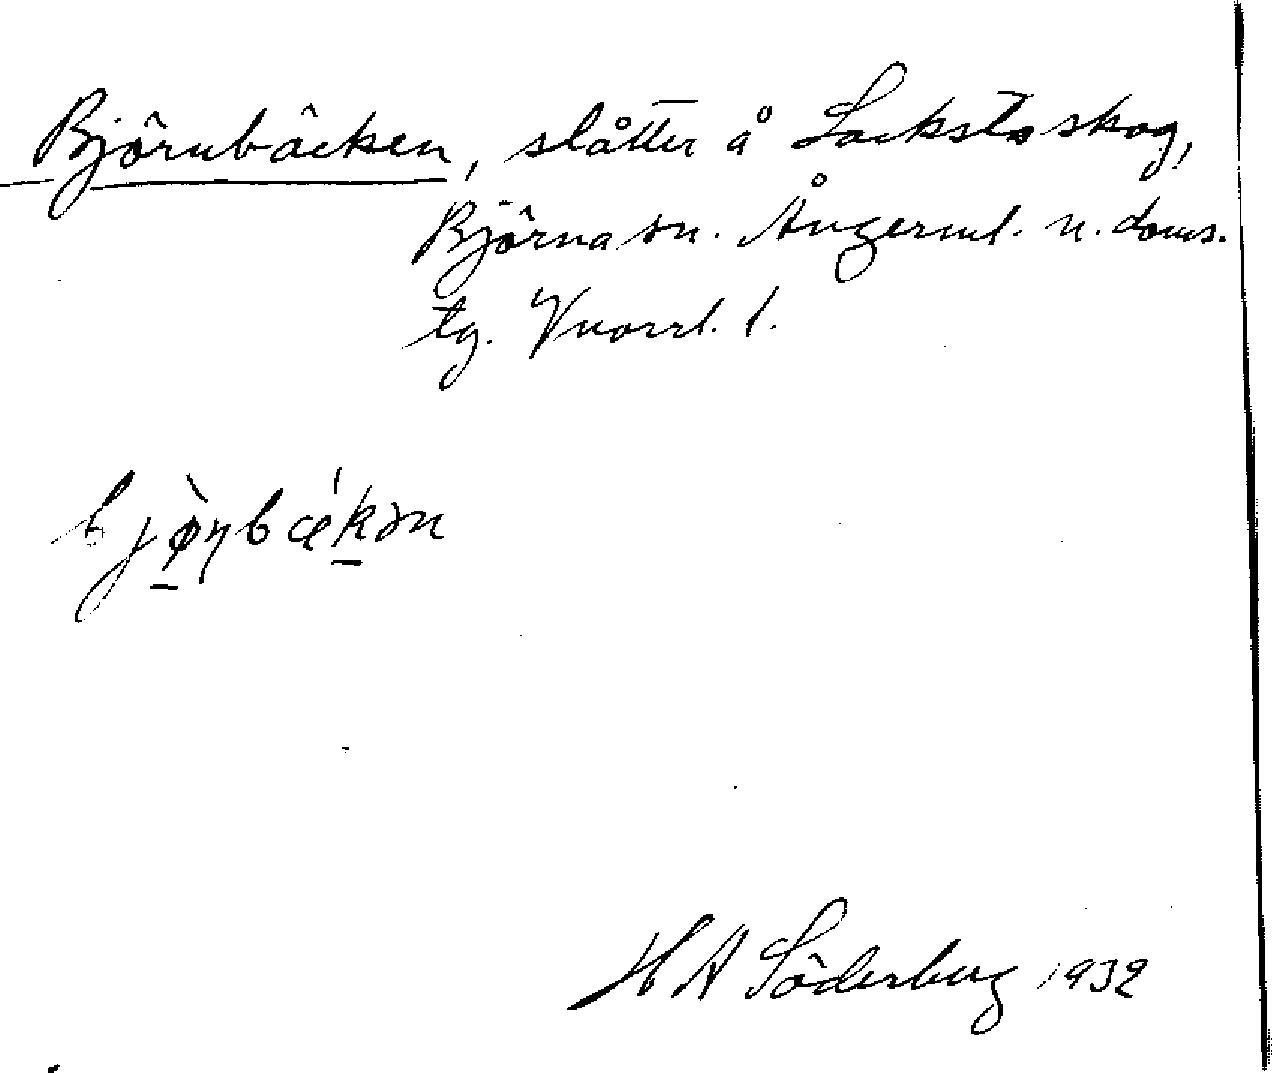 Björnbäcken, slåtter å Lockstaskog,
Björna sn. Ångerml. n. doms.
tg. Vnorrl. l.
bjø̀ṇbǽkən
H A Söderberg 1932